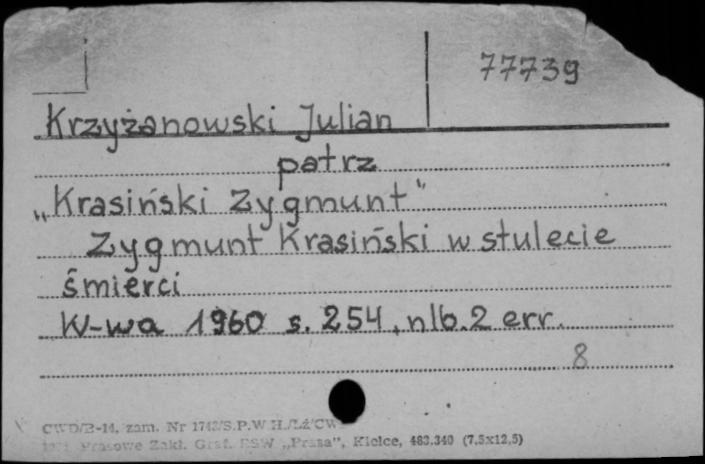 77739
Krzyżanowski Julian
patrz
„Krasiński Zygmunt"
Zygmunt Krasiński w stulecie
śmierci
W-wa 1960 s. 254, nlb. 2 err.
8
CWD/B-14, zam. Nr S.P.W.H./Lź/CW
Prasowe Zakł. Graf. RSW „Prasa", Kielce, 483.340 (7,5x12,5)